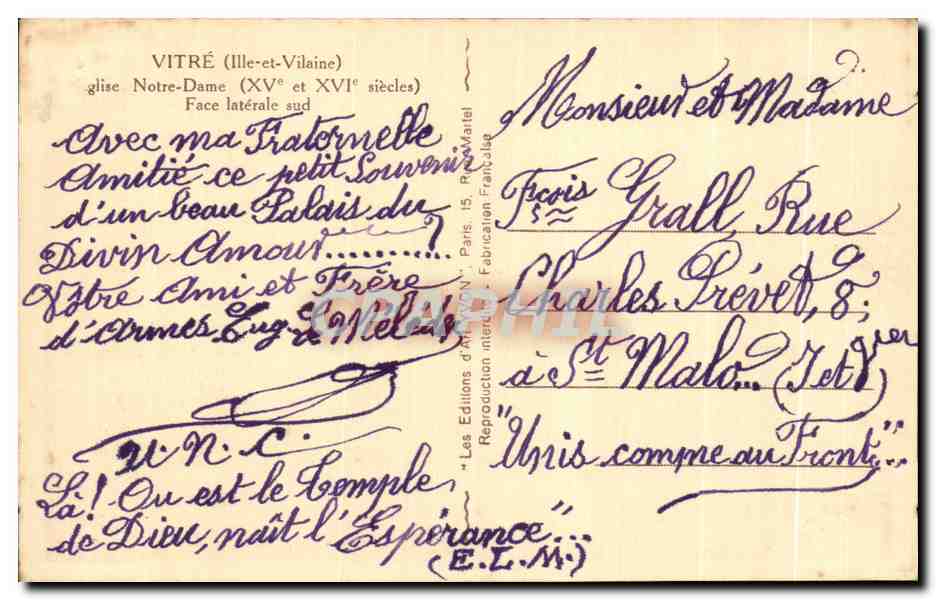 VITRÉ (Ille-et-Vilaine)
glise Notre-Dame (XVe et XVIe siècles)
Face latérale sud
Avec ma Fraternelle
Amitié ce petit Souvenir
d'un beau Palais du
Divin Amour..........?
Vôtre Ami et Frère
d'Armes Eug.
U.N.C.
Là! Ou est le Temple
de Dieu, naît l'Espérance"...
(E.L.M.)
"Les Editions d'Art YVON" Paris, 15, Rue Martel
Reproduction interdite Fabrication Française
CPAPHIL
Monsieur et Madame
Fçois Grall, Rue
Charles Prévet, 8,
à St Malo... (Let Vquer)
"Unis comme au Front"...